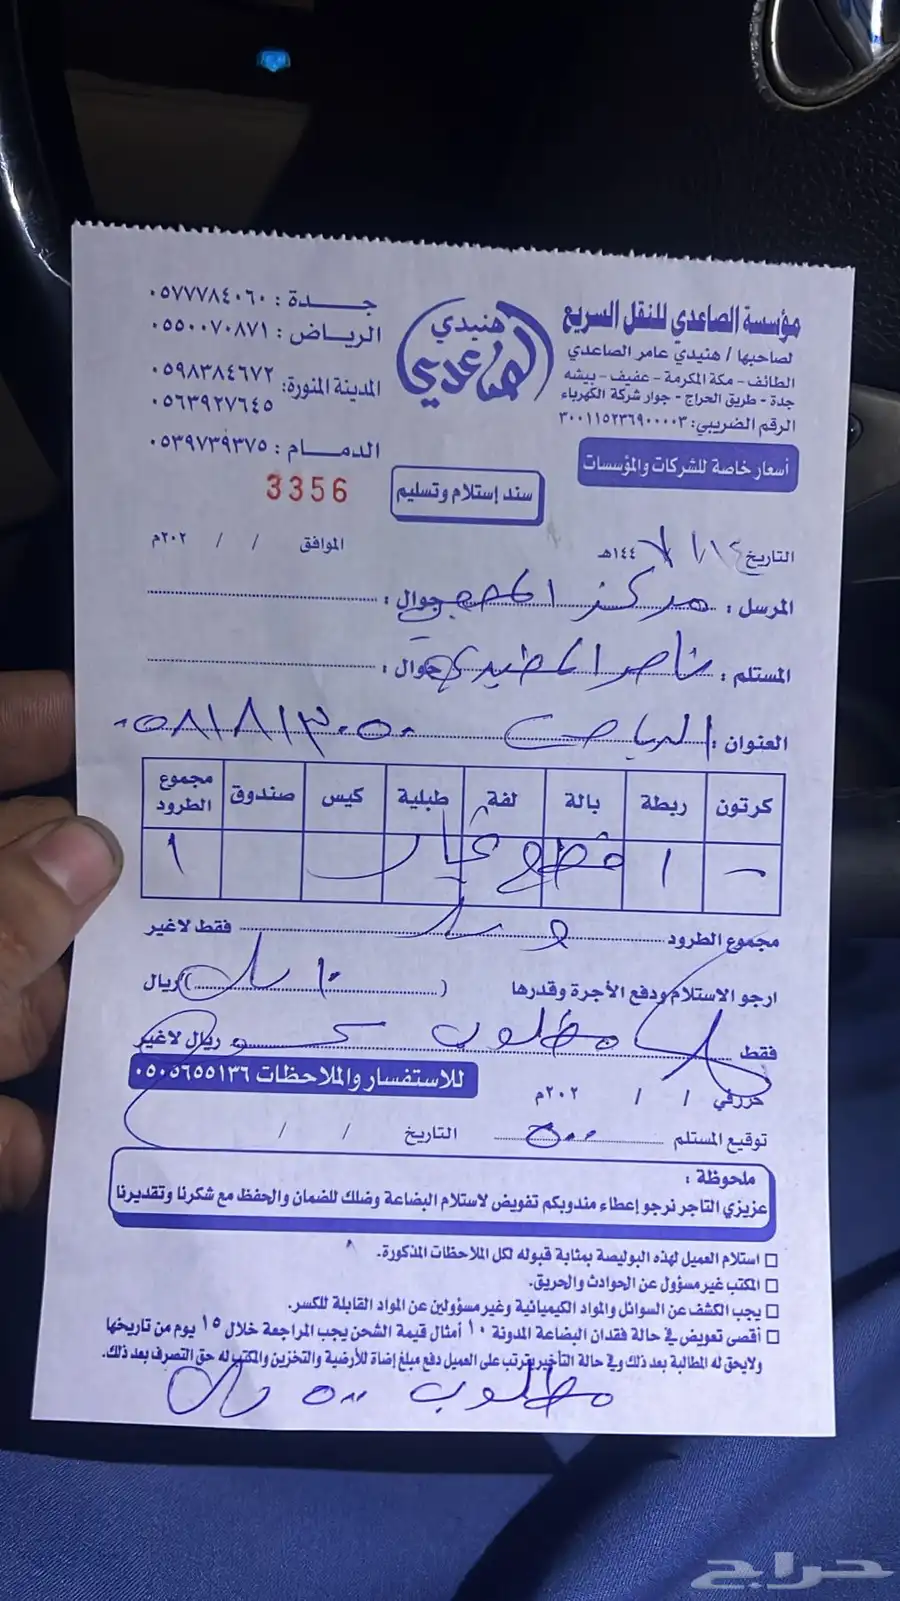 مؤسسة الصاعدي للنقل السريع
لصاحبها / هنيدي عامر الصاعدي
الطائف - مكة المكرمة - عفيف - بيشه
جدة - طريق الحراج - جوار شركة الكهرباء
الرقم الضريبي: ٣٠٠١١٥٢٣٦٩٠٠٠٠٣
أسعار خاصة للشركات والمؤسسات
هنيدي
الصاعدي
جـــدة : ٠٥٧٧٧٨٤٠٦٠
الرياض : ٠٥٥٠٠٧٠٨٧١
المدينة المنورة: ٠٥٩٨٣٨٤٦٧٢
٠٥٦٣٩٢٧٦٤٥
الدمـــام : ٠٥٣٩٧٣٩٣٧٥
3356
سند إستلام وتسليم
التاريخ ١٤ / ١ / ١٤٤٧هـ الموافق / / ٢٠٢م
المرسل : مركز جوال :
المستلم : ناصر المطيري جوال :
العنوان : الرياض ٠٥٨١٨١٣٠٥٠
كرتون ربطة بالة لفة طبلية كيس صندوق مجموع الطرود
- ١ قطع غيار ١
مجموع الطرود فقط لاغير
ارجو الاستلام ودفع الأجرة وقدرها ( ) ريال
فقط مطلوب ريال لاغير
للاستفسار والملاحظات ٠٥٠٥٦٥٥١٣٦
حرر في / / ٢٠٢م
توقيع المستلم ٥٠٠ التاريخ / /
ملحوظة :
عزيزي التاجر نرجو إعطاء مندوبكم تفويض لاستلام البضاعة وضلك للضمان والحفظ مع شكرنا وتقديرنا
استلام العميل لهذه البوليصة بمثابة قبوله لكل الملاحظات المذكورة.
المكتب غير مسؤول عن الحوادث والحريق.
يجب الكشف عن السوائل والمواد الكيميائية وغير مسؤولين عن المواد القابلة للكسر.
أقصى تعويض في حالة فقدان البضاعة المدونة ١٠ أمثال قيمة الشحن يجب المراجعة خلال ١٥ يوم من تاريخها
ولايحق له المطالبة بعد ذلك وفي حالة التأخير يترتب على العميل دفع مبلغ إضاة للأرضية والتخزين والمكتب له حق التصرف بعد ذلك.
مطلوب ٥٠٠ ريال
حراج